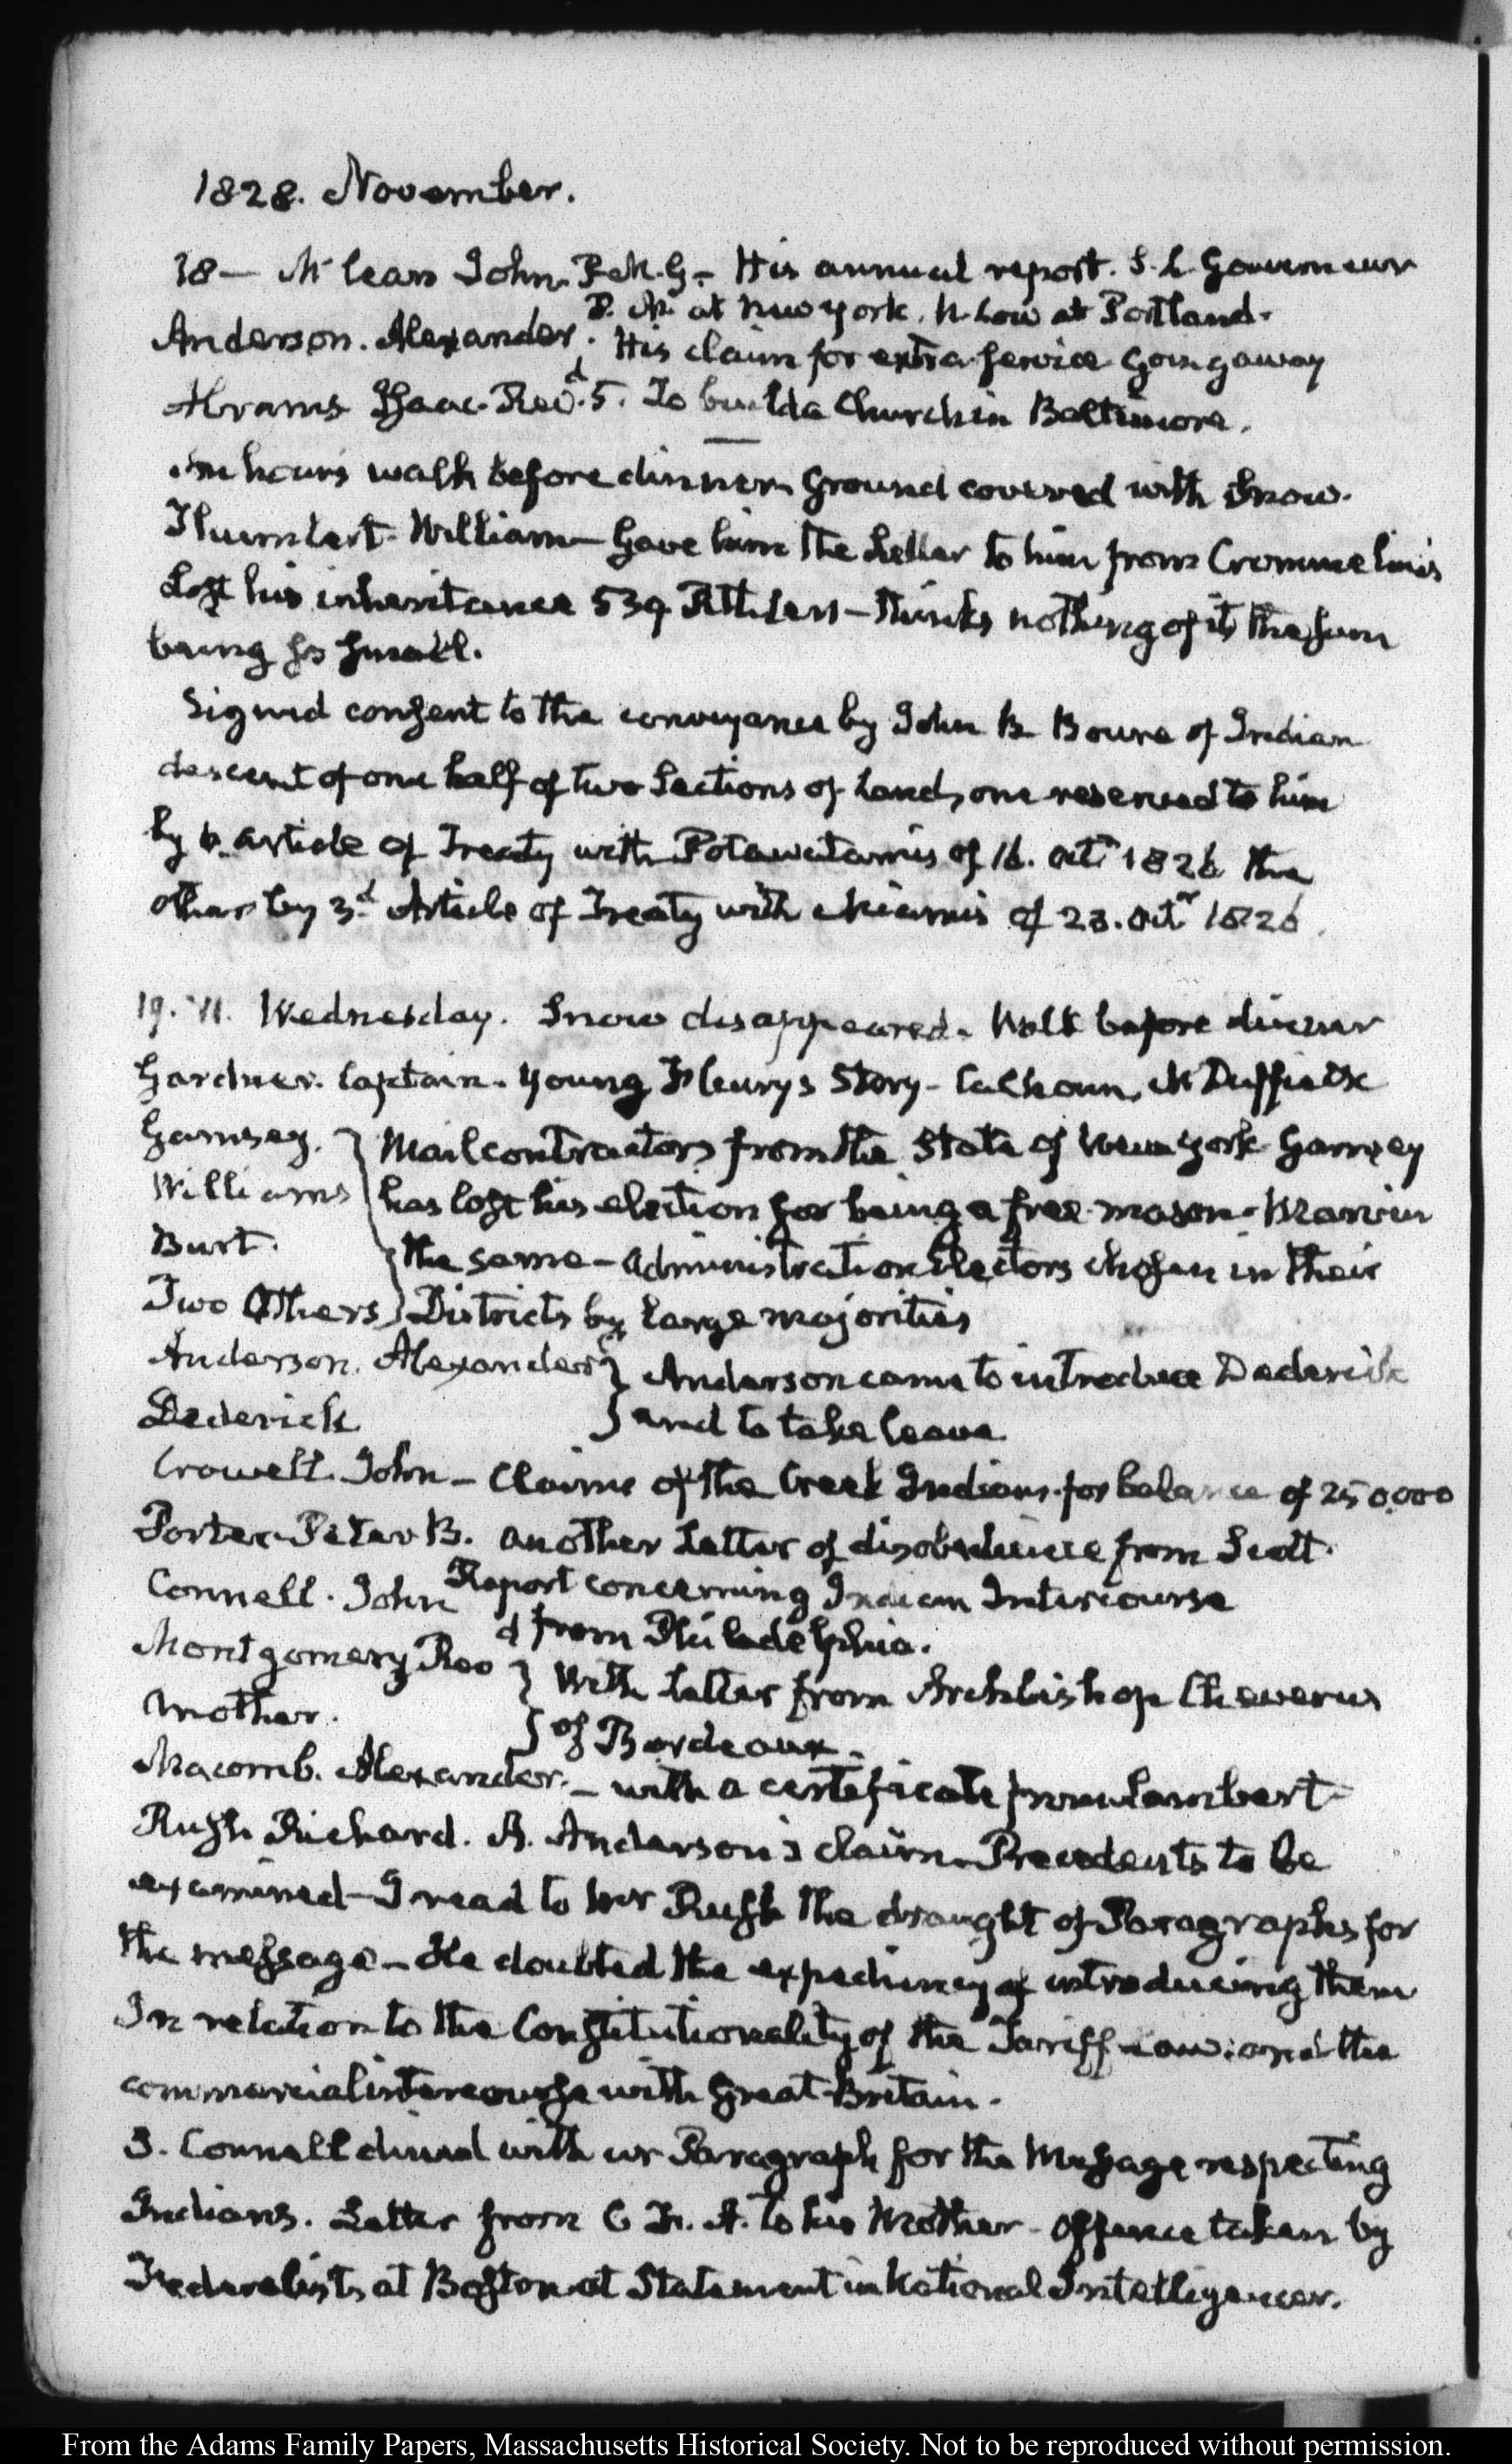 1828. November.
18 — McLean John. P.M.G. – His annual report. S. L. Gouverneur
P. M. at New York. N. Low at Portland.
Anderson. Alexander. His claim for extra service going away
Abrams Isaac. Recd. 5. To build a Church in Baltimore.
An hours walk before dinner. Ground covered with snow.
Thumlert. William — Gave him the Letter to him from Crommelin's
Lost his inheritance 539 — thinks nothing of it the sum
being so small.
Signed consent to the conveyance by John B. Boure of Indian
descent of one half of two Sections of Land, one reserved to him
by 6. article of Treaty with Potawatamis of 16. Octr 1826 the
other by 3d. Article of Treaty with Miamis of 23. Octr 1826.
19. VI. Wednesday. Snow disappeared. Walk before dinner
Gardner. Captain. Young Fleurys Story – Calhoun, McDuffie &c
Garnsey. Mail contractors from the State of New York Garnsey
Williams has lost his election for being a free-mason – Marvin
Burt. the same – Administration Electors chosen in their
Two Others Districts by large majorities
Anderson. Alexander Anderson came to introduce Dederick
Dederick and to take leave.
Crowell. John – Claims of the Creek Indians for balance of 250000
Porter. Peter B. another Letter of disobedience from Scott.
Report concerning Indian Intercourse
Connell. John from Philadelphia.
Montgomery Revd With Letter from Archbishop Cheverus
Another. of Bordeaux.
Macomb. Alexander. – with a certificate from Lambert
Rush Richard. A. Anderson's claim. Precedents to be
examined – I read to Mr Rush the draught of Paragraphs for
the message – He doubted the expediency of introducing them
In relation to the Constitutionality of the Tariff Law: and the
commercial intercourse with Great-Britain.
J. Connell dined with us Paragraph for the Message respecting
Indians. Letter from C. F. A. to his Mother – Offence taken by
Federalists at Boston at Statement in National Intelligencer.
From the Adams Family Papers, Massachusetts Historical Society. Not to be reproduced without permission.